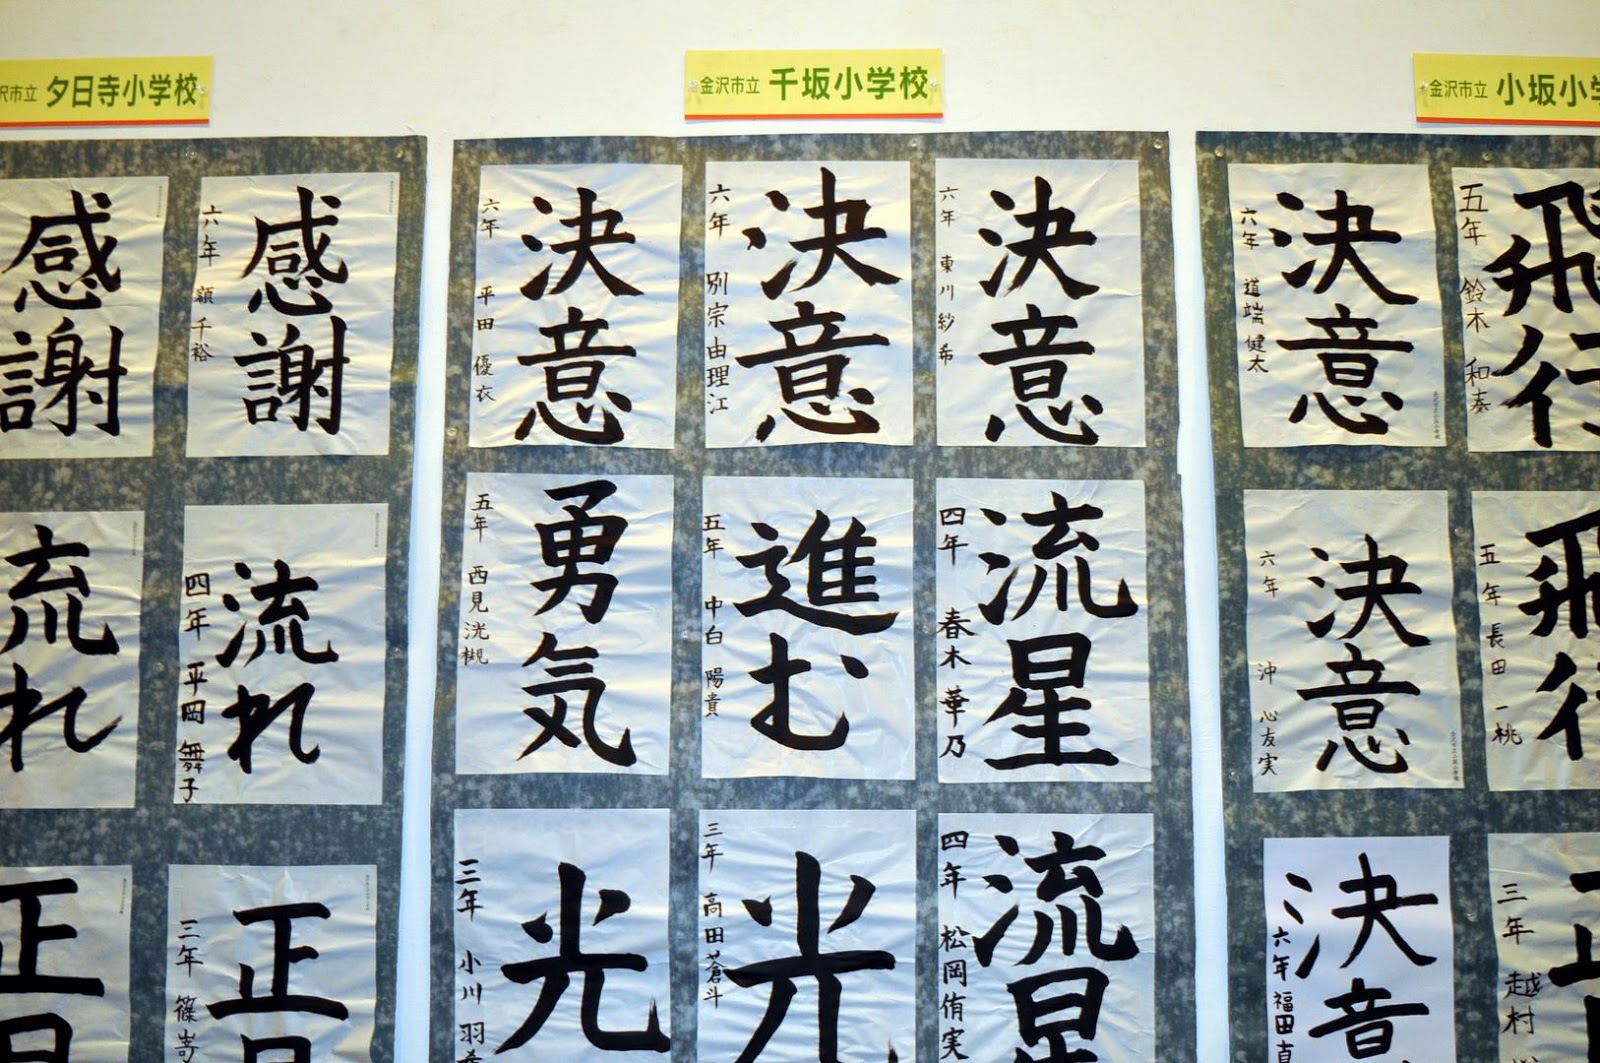 沢市立 夕日寺小学校
感謝
感謝
六年 額 千裕
流れ
流れ
四年 平岡 舞子
正
正
三年 篠
金沢市立 千坂小学校
決意
六年 平田 優衣
決意
六年 別宗 由理江
決意
六年 東川 紗希
勇気
五年 西見 洸槻
進む
五年 中白 陽貴
流星
四年 春木 華乃
光
三年 小川 羽
光
三年 高田 蒼斗
流星
四年 松岡 侑実
金沢市立 小坂小学
決意
六年 道端 健太
飛行
五年 鈴木 和奏
決意
六年 沖 心友実
飛行
五年 長田 一桃
決意
六年 福田
三年 越村